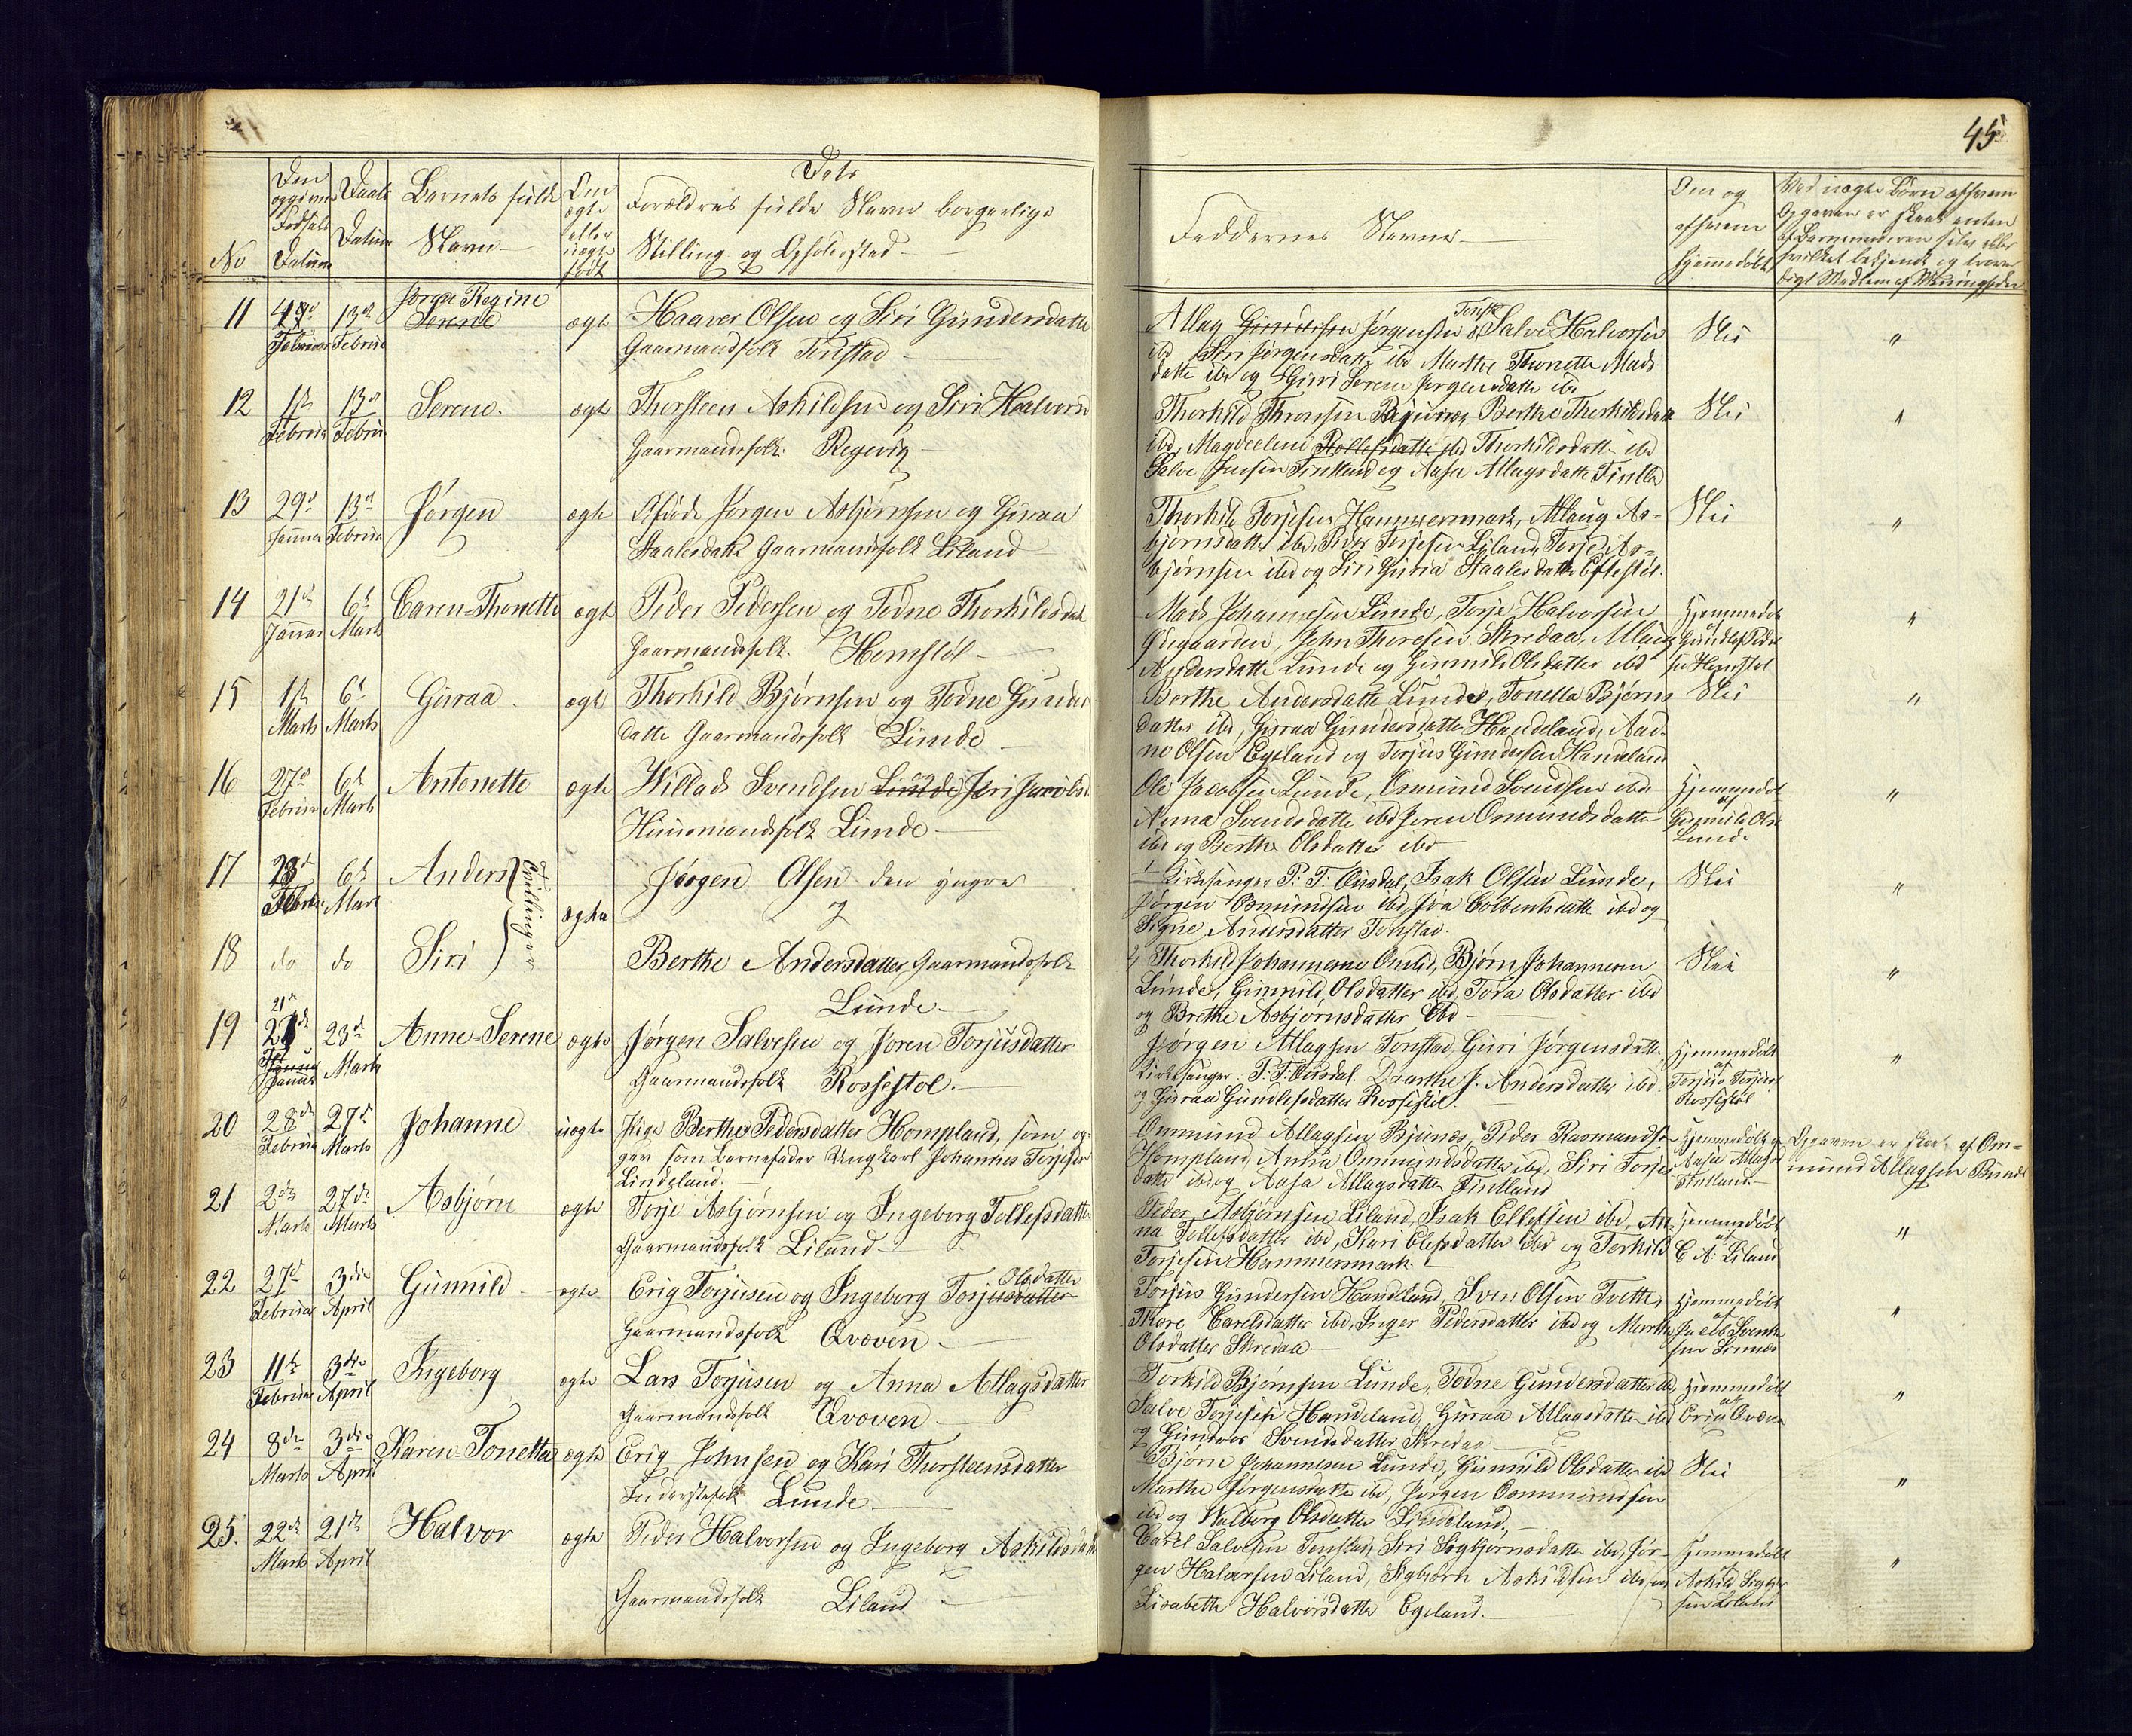 45
No
Den opgivne Fødsels Datum
Daabs Datum
Barnets fulde Navn
Om ægte eller uægte født
Dets
Forældres fulde Navn borgerlige
Stilling og Opholdssted
Faddernes Navne
Om og af hvem hjemmedøbt
Ved uægte Børn af hvem
11
Februar
13d
Februar
Jørgine Regine
Serene
ægte
Haaver Olsen og Siri Gundersdatte
Gaarmandsfolk Tonstad
Atlag Gundersen Jørgensen Tonst. og Salve Halvorsen
ibd Siri Jørgensdatte ibd Marthe Thonette Mads
datte ibd og Guri Serene Jørgensdatte ibd
Nei
"
12
1ste
Februar
13d
Februar
Serene.
ægte
Thorsteen Askildsen og Siri Halvors
Gaarmandsfolk Regevig
Thorkild Thronsen Bjunes, Berthe Thorkildsdatte
ibd, Magdelene Rollefsdatte ibd Thorkildsdatte ibd
Salve Jensen Fintland og Aase Atlagsdatte Fintla
Nei
"
13
29d
Januar
13d
Februar
Jørgen
ægte
Afdøde Jørgen Asbjørnsen og Guraa
Staalesdatte Gaarmandsfolk Liland
Thorkild Torjesen Hammersmark, Atlaug As-
bjørnsdatte ibd, Peder Torjesen Liland, Torje As-
bjørnsen ibd og Siri Guria Staalesdatte Eftestøl.
Nei
"
14
21de
Januar
6te
Marts
Caren-Thonette
ægte
Peder Pedersen og Todne Thorkildsdatte
Gaarmandsfolk. Homstøl
Mads Johannesen Lunde, Torje Halvorsen
Ødegaarden, John Thoresen Skredaa, Atlaug
Andersdatte Lunde og Gunnild Olsdatter ibd
Hjemmedøb
af
Gundlef Peder
sen Homstøl
"
15
1ste
Marts
6te
Marts
Guraa
ægte
Thorkild Bjørnsen og Todne Gunder
datte Gaarmandsfolk Lunde
Berthe Andersdatte Lunde, Tonette Bjørns
datte ibd, Guraa Gundersdatte Handeland, Aad-
ne Olsen Egeland og Torjus Gundersen Handeland
Nei
"
16
27d
Februar
6te
Marts
Antonette
ægte
Willads Svendsen Lunde og Siri Jacobsd
Huusmandsfolk Lunde
Ole Jacobsen Lunde, Osmund Svendsen ibd
Anna Svendsdatte ibd Joren Osmundsdatte
ibd og Berthe Olsdatter ibd
Hjemmedøb
af
Gunnild Ols
Lunde
"
17
23d
Februar
6te
Mart
Anders
Tvillinger
ægte
Jørgen Olsen den yngre
og
1 Kirkesanger P. T. Ousdal, Isak Olsen Lunde,
Jørgen Osmundsen ibd, Eva Colbentsdatte ibd og
Signe Andersdatter Tonstad.
Nei
"
18
do
do
Siri
Berthe Andersdatter Gaarmandsfolk
Lunde
2, Thorkild Johannesen Omlid, Bjørn Johannesen
Lunde, Gunnild Olsdatter ibd, Tora Olsdatter ibd
og Brethe Asbjørnsdatter ibd
Nei
"
19
21de
Januar
23d
Marts
Anne-Serene
ægte
Jørgen Salvesen og Joren Torjusdatter
Gaarmandsfolk Rossestøl.
Jørgen Atlagsen Tonstad, Guri Jørgensdatte
Kirkesanger P. T. Ousdal. Dorthe J. Andersdatter ibd
og Guraa Gundlefsdatter Rossestøl
Hjemmedøbt
af
Torjus Torjus
Rossestøl
"
20
28de
Februar
27d
Marts
Johanne
uægte
Pige Berthe Pedersdatter Hompland, som op-
gav som Barnefader Ungkarl Johannes Torjesen
Lindeland.
Ommund Atlagsen Bjunes, Peder Rasmunds
Hompland, Anna Ommundsdatte ibd, Siri Torjes
datte ibd og Aasa Atlagsdatte Fintland
Hjemmedøbt af
Aase Atlagsd
Fintland
Opgaven er skeet af Om-
mund Atlagsen Biunes
21
2de
Marts
27de
Marts
Asbjørn
ægte
Torje Asbjørnsen og Ingeborg Tollefsdatte
Gaarmandsfolk Liland
Peder Asbjørnsen Liland, Isak Ellefsen ibd, An-
na Tollefsdatter ibd, Kari Elefsdatter ibd og Torkild
Torjesen Hammersmark
Hjemmedøbt
af
E. A. Liland
"
22
27d
Februar
3die
April
Gunnild
ægte
Erig Torjusen og Ingeborg Torjusdatter Olsdatter
Gaarmandsfolk Qvoven
Torjus Gundersen Handeland, Sven Olsen Tvette,
Thore Carelsdatter ibd, Inger Pedersdatter ibd og Marthe
Olsdatter Skredaa
Hjemmedøbt
af
Jacob Svend
sen Sinnæs
"
23
11te
Februar
3die
April
Ingeborg
ægte
Lars Torjusen og Anna Atlagsdatter
Gaarmandsfolk Qvoven
Torkild Bjørnsen Lunde, Todne Gundersdatter ibd,
Salve Torjesen Handeland, Guraa Atlagsdatte ibd
og Gundvor Svendsdatter Skredaa
Hjemmedøbt
af
Erig Qvoven
"
24
8de
Marts
3die
April
Karen-Tonetta
ægte
Erig Johnsen og Kari Thorsteensdatter
Inderstefolk Lunde
Bjørn Johannesen Lunde, Gunnild Olsdatter ibd
Marthe Jørgensdatte ibd, Jørgen Osmundsen
ibd og Walborg Olsdatter Lindeland,
Nei
"
25.
22de
Marts
21de
April
Halvor
ægte
Peder Halvorsen og Ingeborg Askildsdatte
Gaarmandsfolk Liland
Carel Salvesen Tonstad, Siri Sigbjørnsdatte ibd, Jør-
gen Halvorsen Liland, Sigbjørn Askildsen ibd og
Lisabethe Halvorsdatte Egeland.
Hjemmedøbt
af
Askild Sigbjør
sen Liland
"